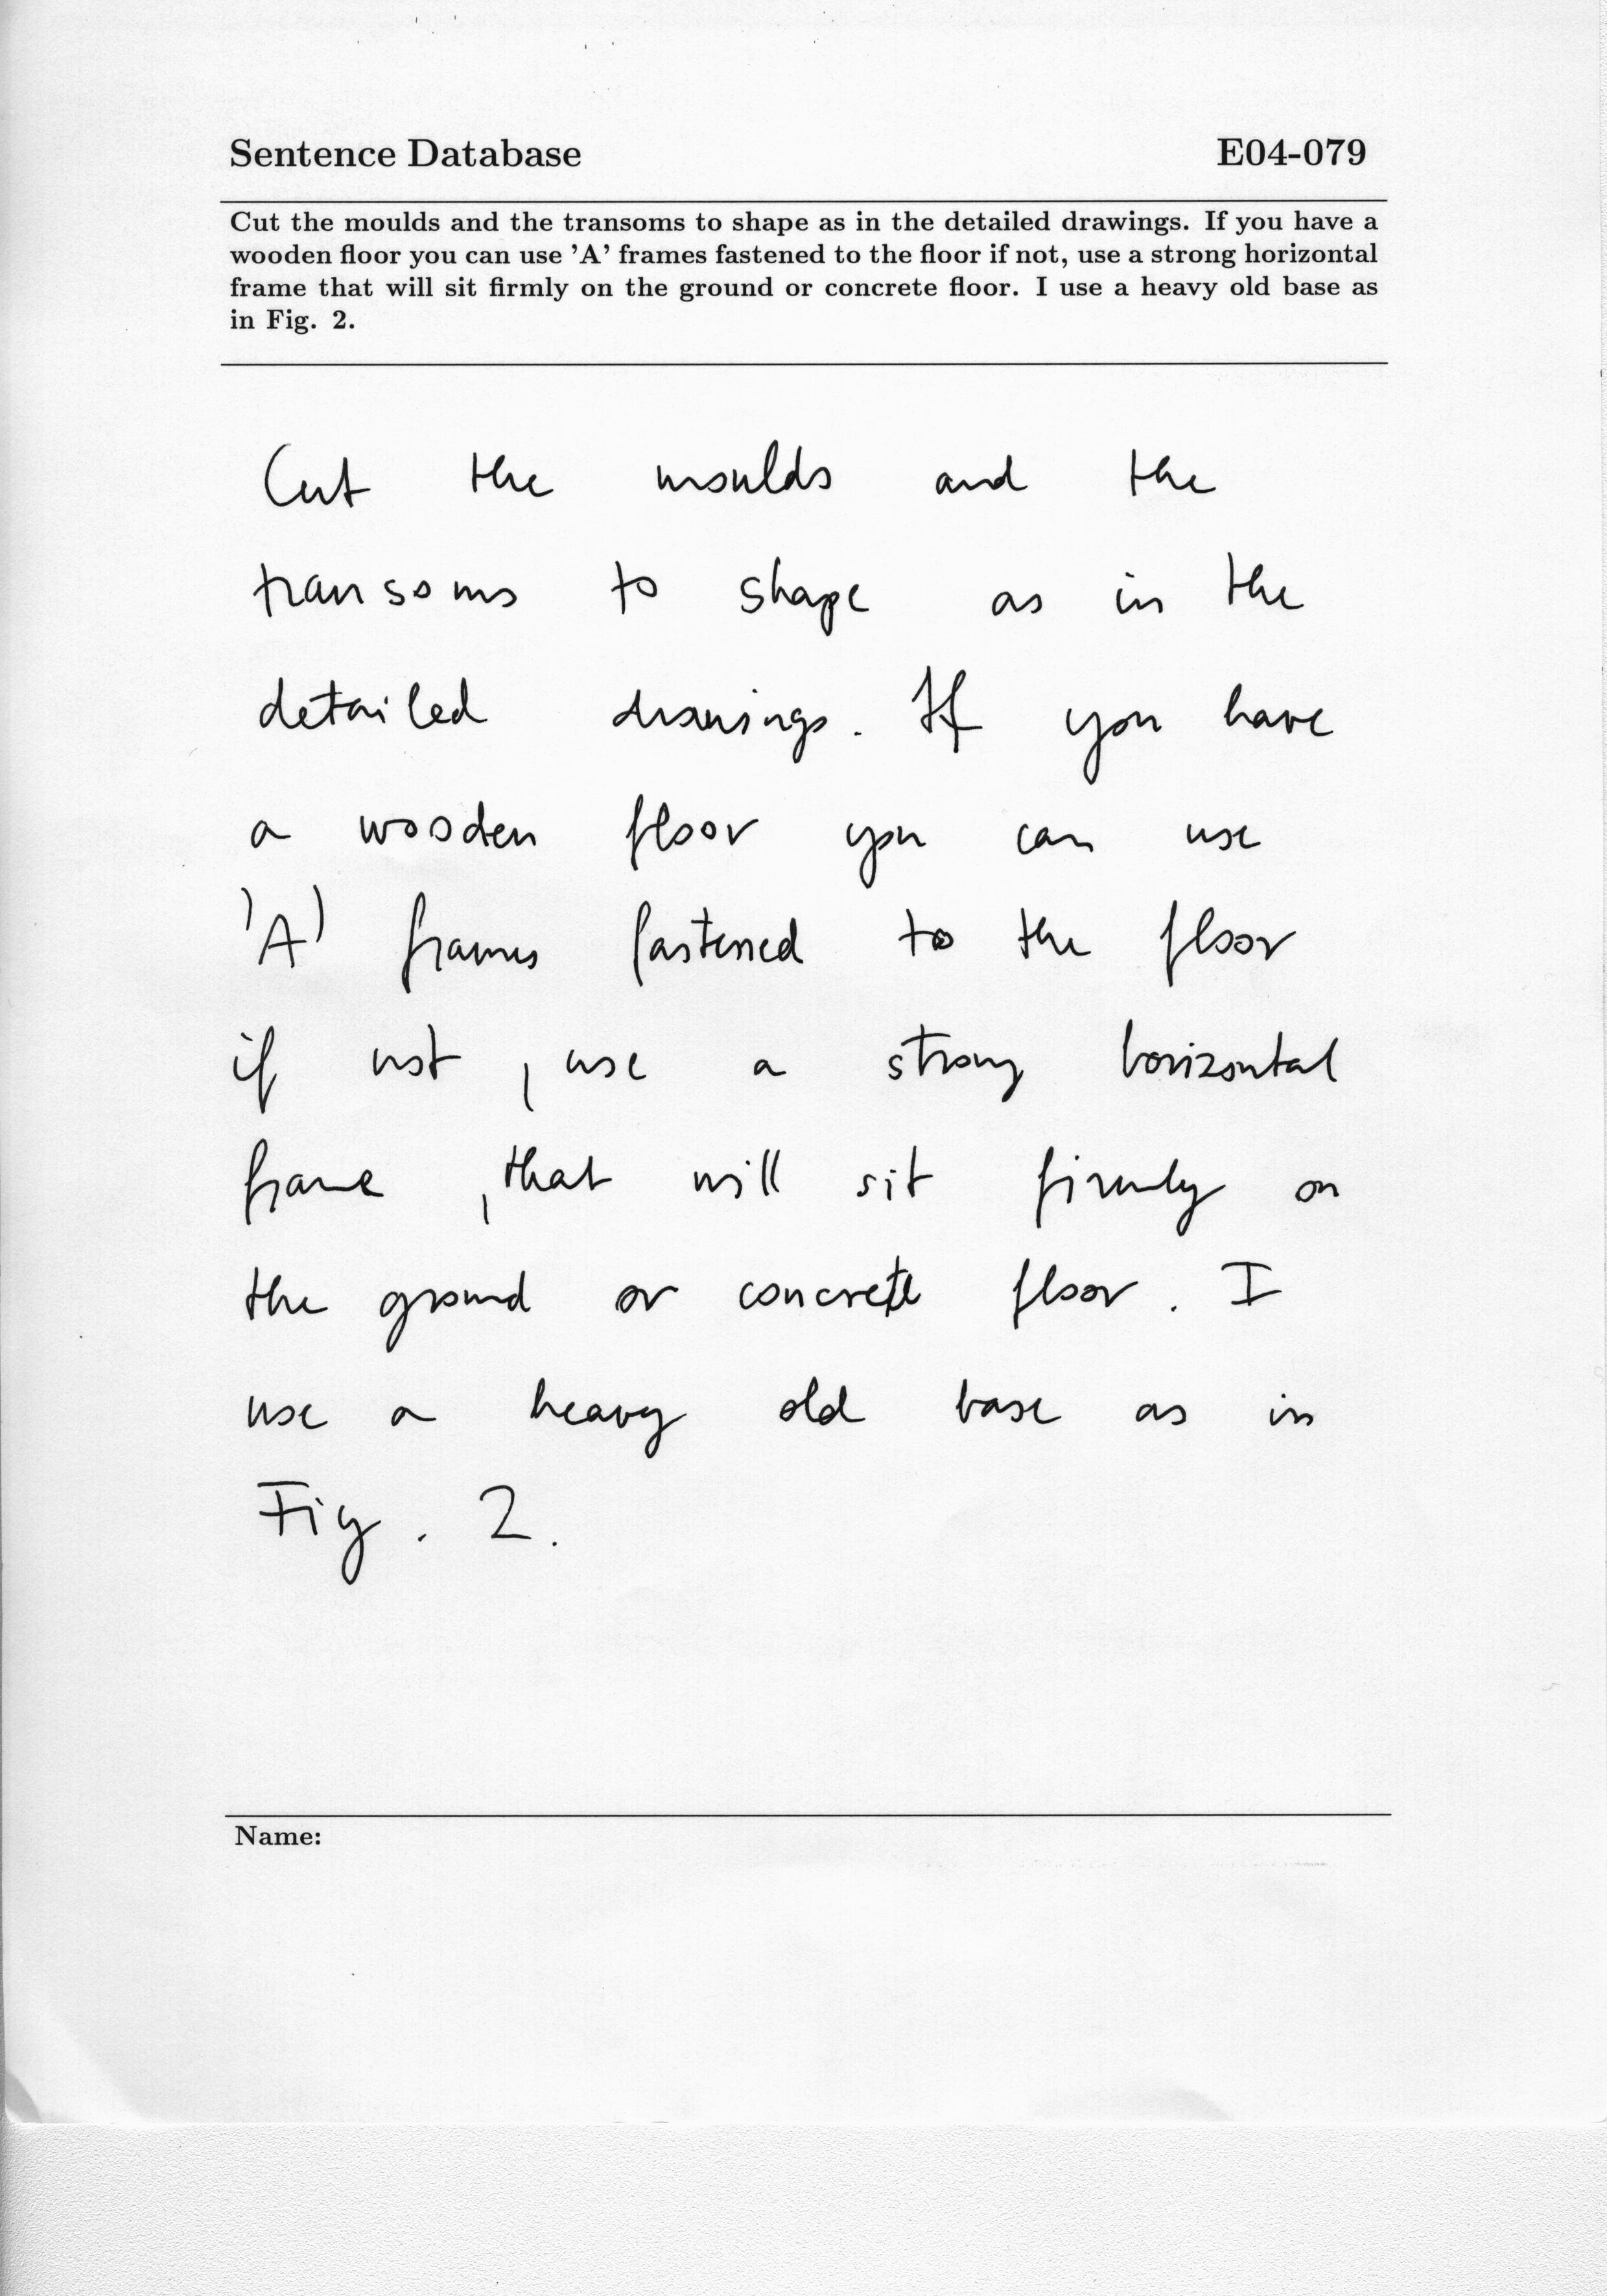 Sentence Database E04-079
Cut the moulds and the transoms to shape as in the detailed drawings. If you have a
wooden floor you can use 'A' frames fastened to the floor if not, use a strong horizontal
frame that will sit firmly on the ground or concrete floor. I use a heavy old base as
in Fig. 2.
Cut the moulds and the
transoms to shape as in the
detailed drawings. If you have
a wooden floor you can use
'A' frames fastened to the floor
if not, use a strong horizontal
frame, that will sit firmly on
the ground or concrete floor. I
use a heavy old base as in
Fig. 2.
Name: